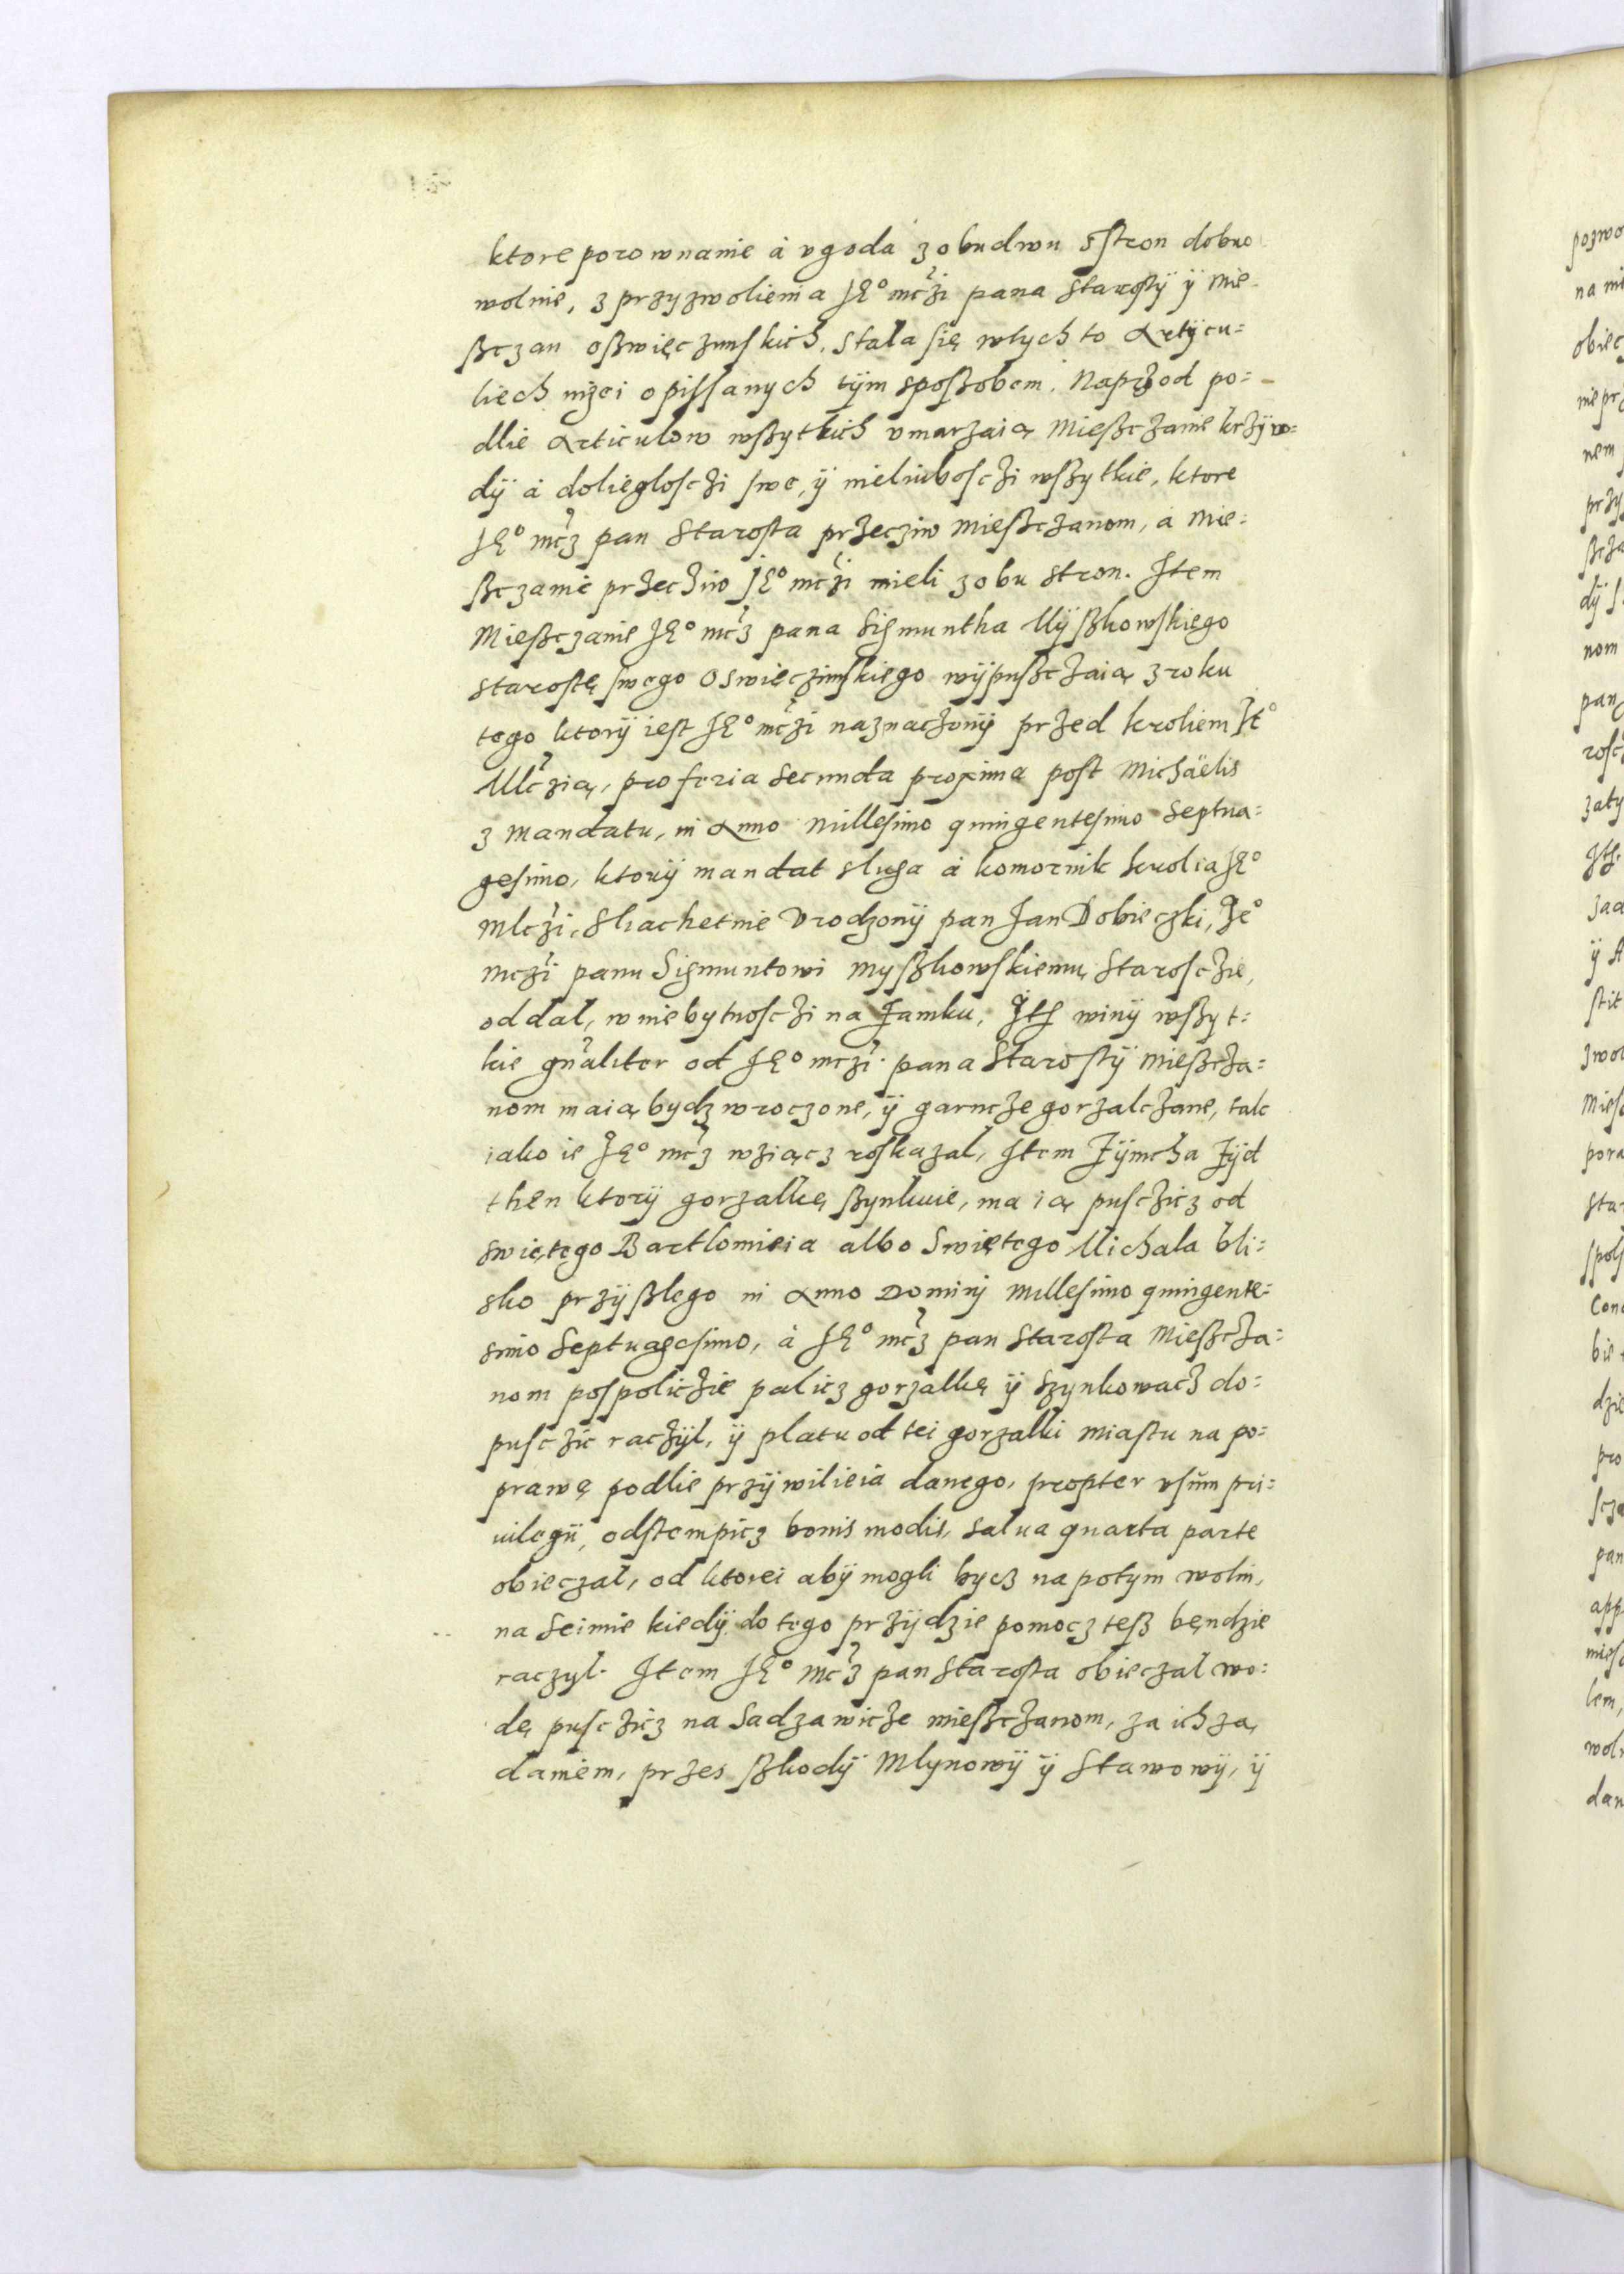 ktore porownanie á vgoda z obudwu sstron dobro
wolnie, z przyzwoliem a JE° mc̃zi pana Starostÿ ÿ Mie-
ßczan oßwięczimskich, Stala się wtych to Artÿcu=
liech niżei opissanych tÿm sposzobem. Naprzod po=
dlie Articulow wßytkich vmarzaią Mießczanie krzÿw=
dÿ á doliegloscżi swe, ÿ nieliuboscżi wßytkie, ktore
JE° mc̃z pan Starosta przecziw Mießczanom, á Mie=
ßczanie przecżiw JE° mc̃zi mieli z obu stron. Item
Mießczanie JE° mc̃z pana Sigmuntha Mÿßkowskiego
starostę swego Oswięczimskiego wÿpußcżaią z roku
tego ktorÿ iest JE° mc̃zi naznacżonÿ przed kroliem JE°
Mc̃zią, pro feria secunda proxima post Michäelis
z Mandatu, in Anno Millesimo quingentesimo Septua=
gesimo, ktorÿ mandat sluga á komornik krolia JE°
Mlc̃zi, Sliachetnie Vrodzonÿ pan Jan Dobieczki, Je°
mc̃zi panu Sigmuntowi Myßkowskiemu Starosczie,
oddal, w niebytnoscżi na Zamku, Itʃ winÿ wßyt=
kie gñaliter od JE° mc̃zi pana Starostÿ Mießcża=
nom maią bydz wroczone, ÿ garncże gorzalcżane, tak
iako ie JE° mc̃z wziącz roskazal, Item Zÿmcha Zÿd
then ktorÿ gorzalkę ßynkuie, ma ią puscżicz od
swiętego Bartlomieia albo Swiętego Michala bli=
sko przÿßlego in Anno Dominÿ Millesimo quingente=
simo Septuagesimo, á JE° mc̃z pan Starosta Mießcża=
nom pospolicżie palicz gorzalkę ÿ Szynkowacż do=
puscżic racżÿl, ÿ platu od tei gorzalki miastu na po=
prawę podlie przÿwilieia danego, propter vsum pri=
uilegii, odstempicz bonis modis, salua quarta parte
obieczal, od ktorei abÿ mogli bycz na potym wolni,
na Seimie kiedÿ do tego przÿdzie pomocz teß będzie
raczyl. Item JE° mc̃z pan Starosta obieczal wo=
dę puscżicz na Sadzawicże mießcżanom, za ich zą
daniem, przes ßkodÿ Mlynowÿ ÿ Stawowÿ, ÿ